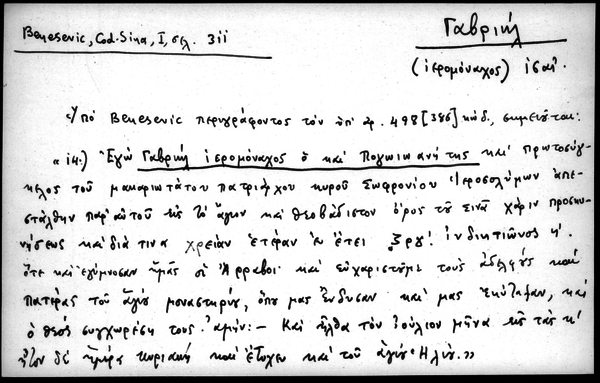 Benesevic, Cod. Sina, I, σελ. 311
Γαβριήλ
(ἱερομόναχος) ισαι.
Ὑπό Benesevic περιγράφοντος τόν ὑπ' ἀρ. 498 [386] κώδ., σημειοῦται:
« 14.) Ἐγώ Γαβριήλ ἱερομόναχος ὁ καί Πογωιωανίτης καί πρωτοσύγ-
κελος τοῦ μακαριωτάτου πατριάρχου κυροῦ Σωφρονίου Ἱεροσολύμων ἀπε-
στάλθην παρ' αὐτοῦ εἰς τό ἅγιον καί θεοβάδιστον ὄρος τοῦ Σινᾶ χάριν προσκυ-
νήσεως καί διά τινα χρείαν ἑτέραν ἐν ἔτει ἰνδικτιῶνος
ὅτε καί ἐγύμνοσαν ἡμᾶς οἱ Ἄρραβοι καί εὐχαριστοῦμε τούς ἀδελφούς καί
πατέρας τοῦ ἁγίου μοναστηρίου, ὅπου μας ἔνδυσαν καί μας καί
ὁ θεός συγχωρέσῃ τους. ἀμήν: – Καί ἦλθα τόν Ἰούλιον μῆνα εἰς τάς κ'
ἦτον δέ ἡμέρα κυριακή καί ἔτυχεν καί τοῦ ἁγίου Ἠλιοῦ.»